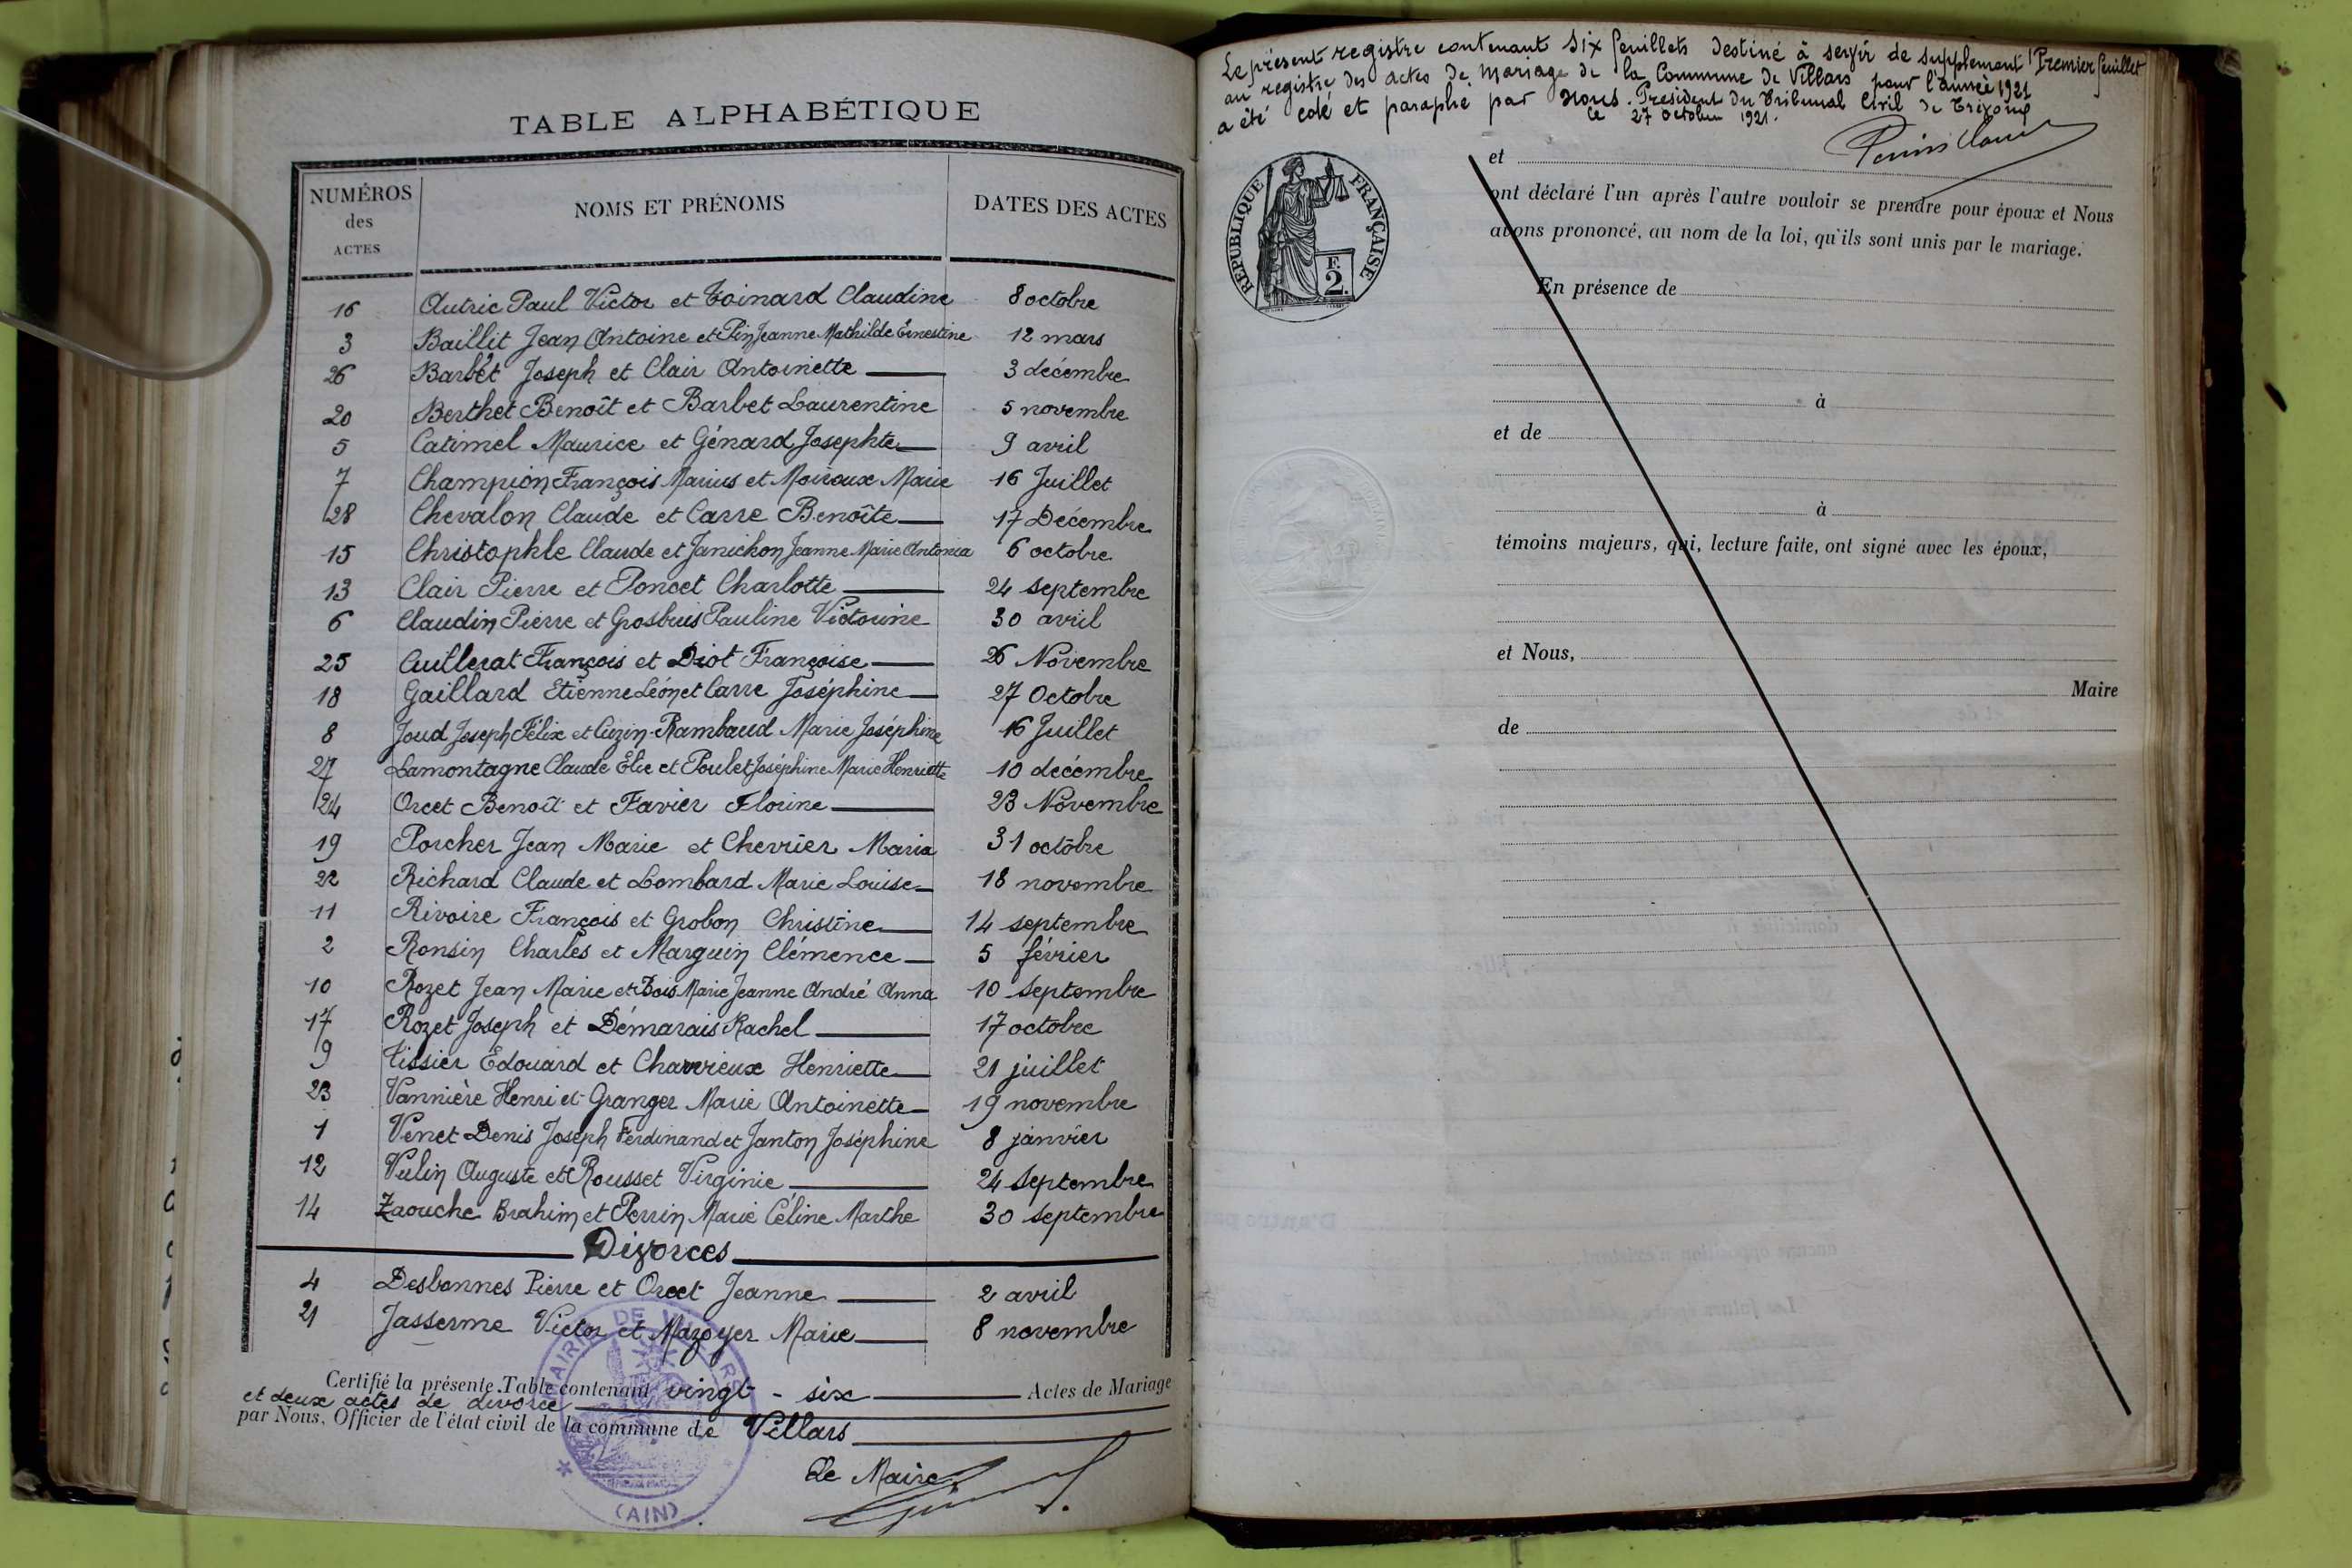 TABLE ALPHABÉTIQUE
NUMÉROS des ACTES NOMS ET PRÉNOMS DATES DES ACTES
16 Autric Paul Victor et Toinard Claudine 8 octobre
3 Baillit Jean Antoine et Pin Jeanne Mathilde Ernestine 12 mars
26 Barbet Joseph et Clair Antoinette 3 décembre
20 Berthet Benoît et Barbet Laurentine 5 novembre
5 Catimel Maurice et Génard Josephte 9 avril
7 Champion François Marius et Moiroux Marie 16 Juillet
28 Chevalon Claude et Carre Benoîte 17 Décembre
15 Christophle Claude et Janichon Jeanne Marie Antonia 6 octobre
13 Clair Pierre et Poncet Charlotte 24 septembre
6 Claudin Pierre et Grosbuis Pauline Victorine 30 avril
25 Cuillerat François et Diot Françoise 26 Novembre
18 Gaillard Etienne Léon et Carre Joséphine 27 Octobre
8 Joud Joseph Félix et Cuzin-Rambaud Marie Joséphine 16 Juillet
27 Lamontagne Claude Élie et Poulet Joséphine Marie Henriette 10 décembre
24 Orcet Benoît et Favier Florine 23 Novembre
19 Porcher Jean Marie et Chevrier Maria 31 octobre
22 Richard Claude et Lombard Marie Louise 18 novembre
11 Rivoire François et Grobon Christine 14 septembre
2 Ronsin Charles et Marguin Clémence 5 février
10 Rozet Jean Marie et Bois Marie Jeanne André Anna 10 septembre
17 Rozet Joseph et Démarais Rachel 17 octobre
9 Tissier Edouard et Charvieux Henriette 21 juillet
23 Vannière Henri et Granger Marie Antoinette 19 novembre
1 Venet Denis Joseph Ferdinand et Janton Joséphine 8 janvier
12 Vulin Auguste et Rousset Virginie 24 septembre
14 Zaouche Brahim et Perrin Marie Céline Marthe 30 septembre
Divorces
4 Desbonnes Pierre et Orcet Jeanne 2 avril
21 Jasserme Victor et Mazoyer Marie 8 novembre
Certifié la présente Table contenant vingt-six Actes de Mariage
et deux actes de divorce
par Nous, Officier de l'état civil de la commune de Villars
Le Maire
MAIRIE DE VILLARS
(AIN)
Le présent registre contenant six feuillets destiné à servir de supplement Premier feuillet
au registre des actes de Mariage de la Commune de Villars pour l'année 1921
a été coté et paraphé par Nous. Président du Tribunal Civil de Trévoux
le 27 octobre 1921.
RÉPUBLIQUE FRANÇAISE
2 F.
et
ont déclaré l'un après l'autre vouloir se prendre pour époux et Nous
avons prononcé, au nom de la loi, qu'ils sont unis par le mariage.
En présence de
à
et de
à
témoins majeurs, qui, lecture faite, ont signé avec les époux,
et Nous,
Maire
de